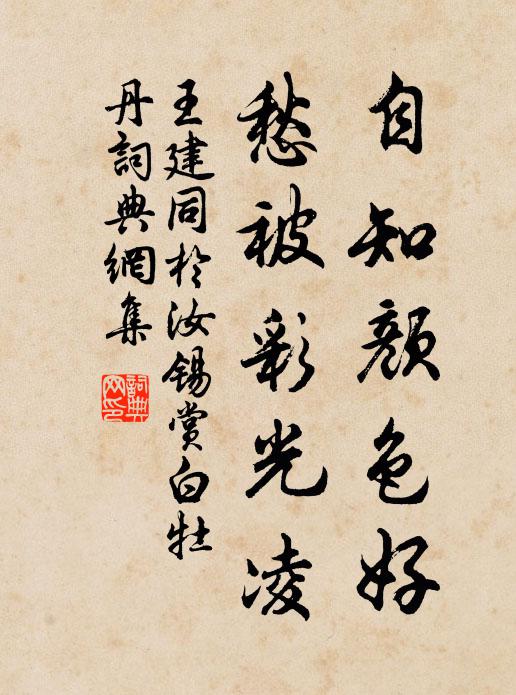 自知顏色好
愁被彩光凌
王建同於汝錫賞白牡
丹詞典網集
詞典
网印